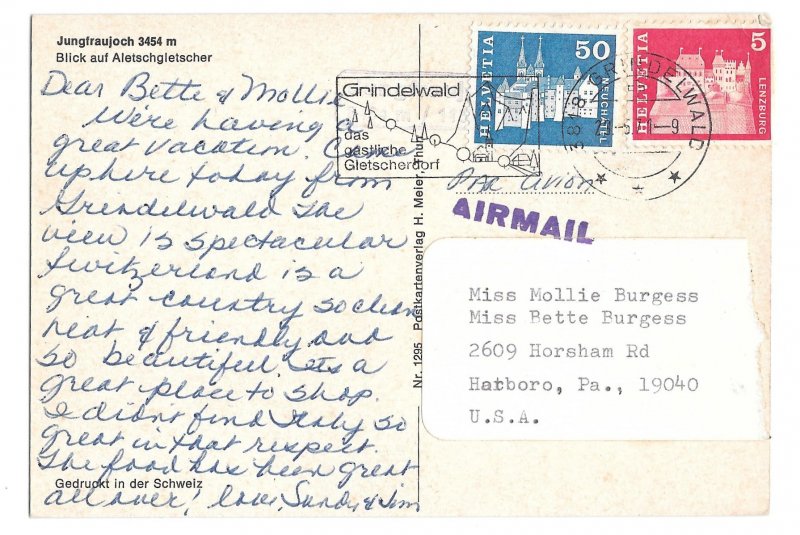 Jungfraujoch 3454 m
Blick auf Aletschgletscher
Dear Bette & Mollie
We're having a
great vacation. Came
up here today from
Grindelwald The
view is spectacular
Switzerland is a
great country so clean
neat & friendly and
so beautiful. Its a
great place to shop.
I didn't find Italy so
great in that respect.
The food has been great
all over! love, Sandy & Jim
Gedruckt in der Schweiz
Nr. 1295 Postkartenverlag H. Meier, Thun
Grindelwald
das
gastliche
Gletscherdorf
HELVETIA
50
NEUCHÂTEL
HELVETIA
5
LENZBURG
3818 GRINDELWALD
Par avion
AIRMAIL
Miss Mollie Burgess
Miss Bette Burgess
2609 Horsham Rd
Hatboro, Pa., 19040
U.S.A.